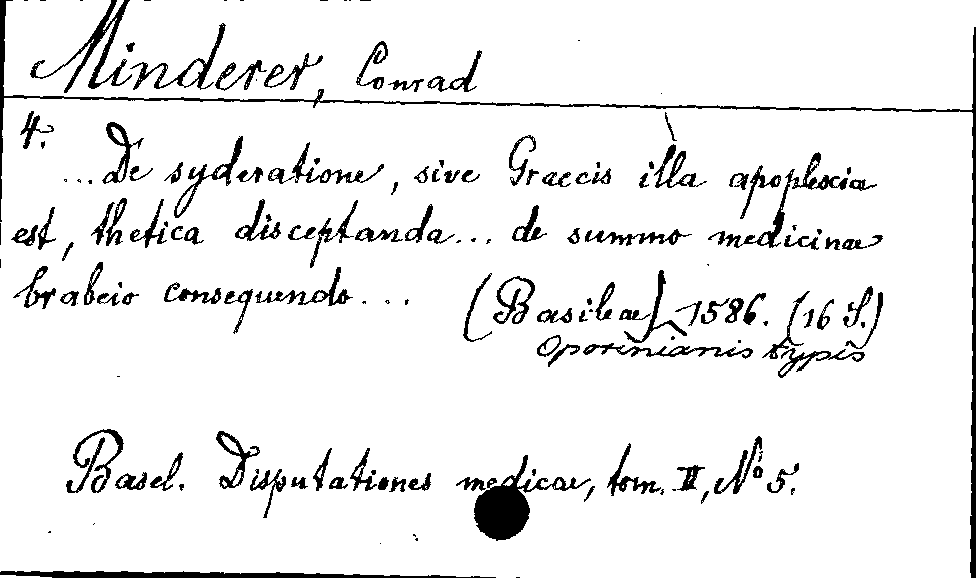 Minderer, Conrad
4.
...De syderatione, sive Graecis illa apoplexia
est, thetica disceptanda... de summo medicinae
brabeio consequendo...
(Basileae) 1586. (16 S.)
Oporinianis typis
Basel. Disputationes medicae, tom. II, No 5.